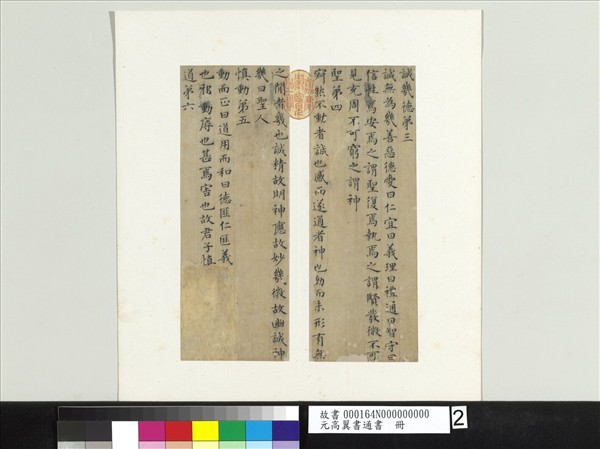 誠幾德第三
誠無為幾善惡德愛曰仁宜曰義理曰禮通曰智守曰
信性焉安焉之謂聖復焉執焉之謂賢發微不可
見充周不可窮之謂神
聖第四
寂然不動者誠也感而遂通者神也動而未形有無
之間者幾也誠精故明神應故妙幾微故幽誠神
幾曰聖人
慎動第五
動而正曰道用而和曰德匪仁匪義
也邪動辱也甚焉害也故君子慎
道第六
故書 000164N000000000
元高翼書通書 冊
2